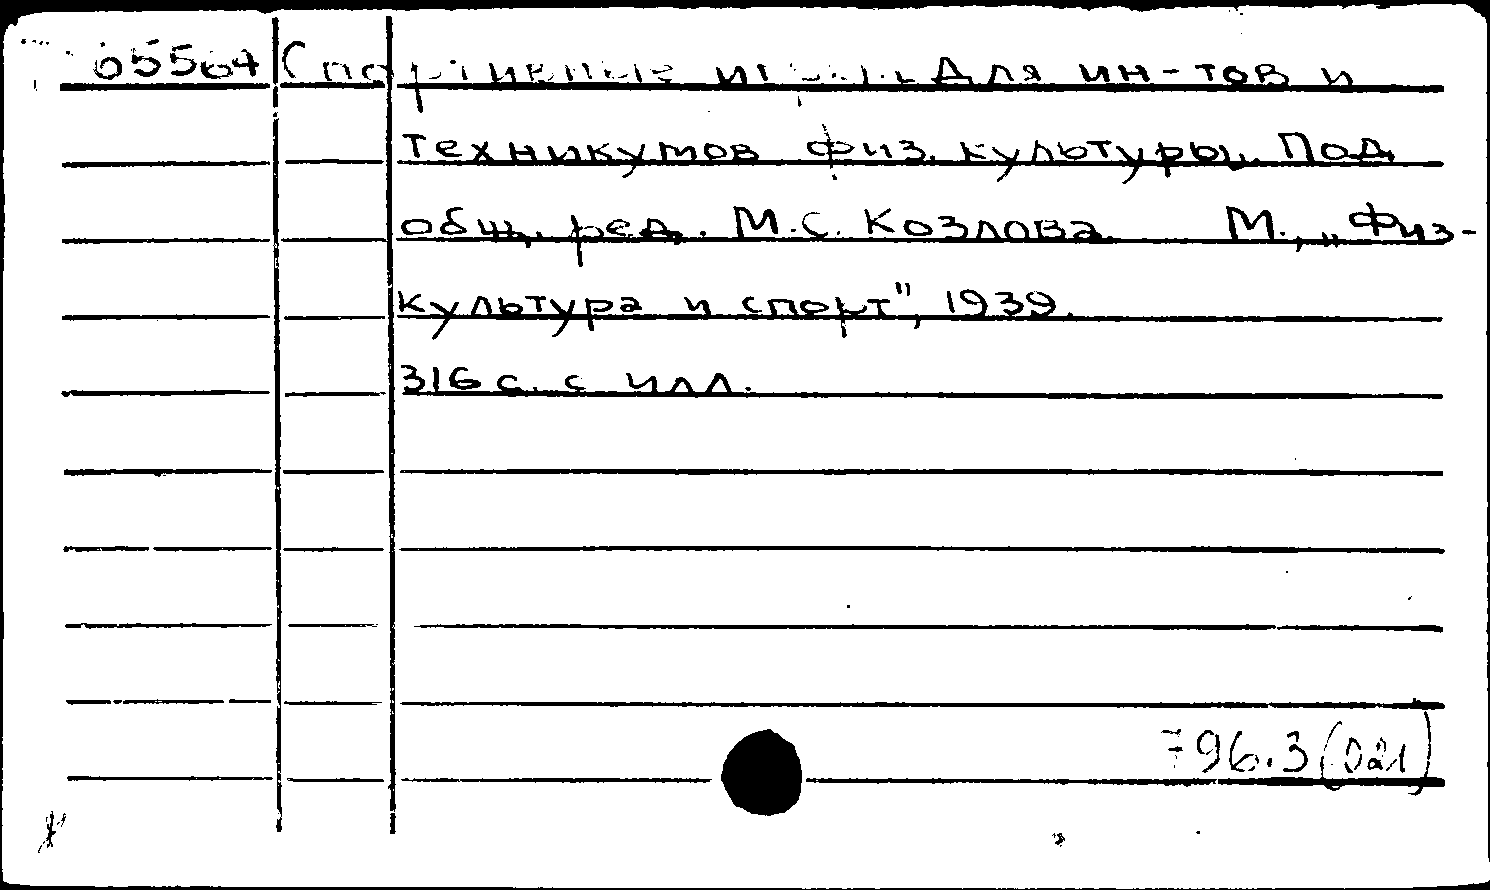 65564 Спортивные игры. Для ин-тов и
техникумов физ. культуры. Под
общ. ред. М.С. Козлова. М., „Физ-
культура и спорт", 1939.
316 с. с илл.
796.3(021)